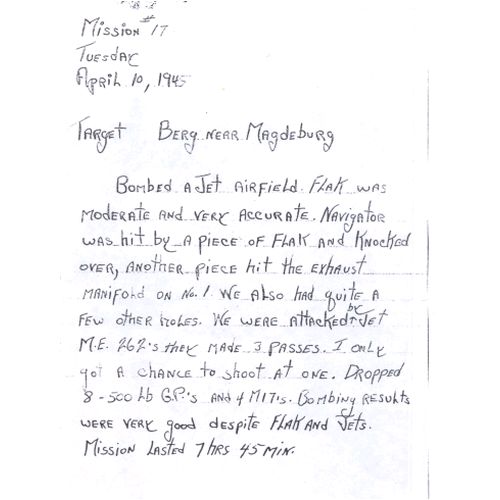 Mission #17
Tuesday
April 10, 1945
Target Berg near Magdeburg
Bombed a Jet airfield. Flak was
moderate and very accurate. Navigator
was hit by a piece of flak and knocked
over, another piece hit the exhaust
manifold on No. 1. We also had quite a
few other holes. We were attacked by Jet
M.E. 262's they made 3 passes. I only
got a chance to shoot at one. Dropped
8-500 lb G.P.'s and 4 M17's. Bombing results
were very good despite Flak and Jets.
Mission lasted 7 hrs 45 min.